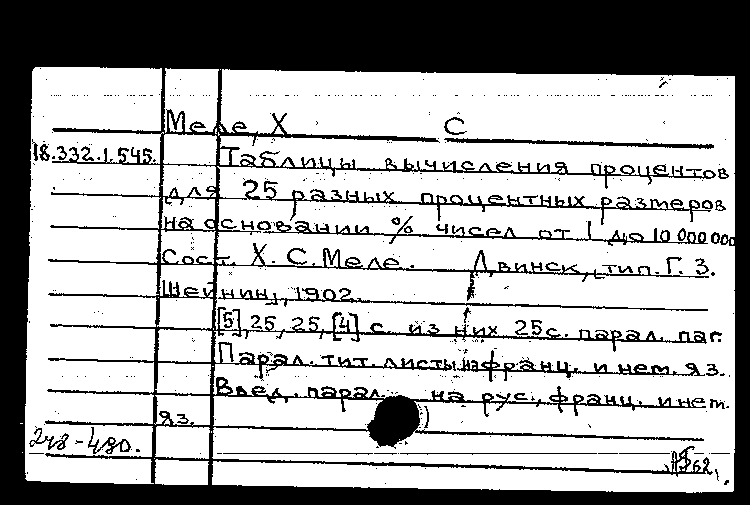 Меле, Х С
18.332.1.545. Таблицы вычисления процентов
для 25 разных процентных размеров
на основании % чисел от 1 до 10 000 000
Сост. Х. С. Меле. Двинск, тип. Г. З.
Шейнин, 1902.
[5], 25, 25, [4] с. из них 25 с. парал. паг.
Парал. тит. листы на франц. и нем. яз.
Введ. парал. на рус., франц. и нем.
яз.
248-480.
62.